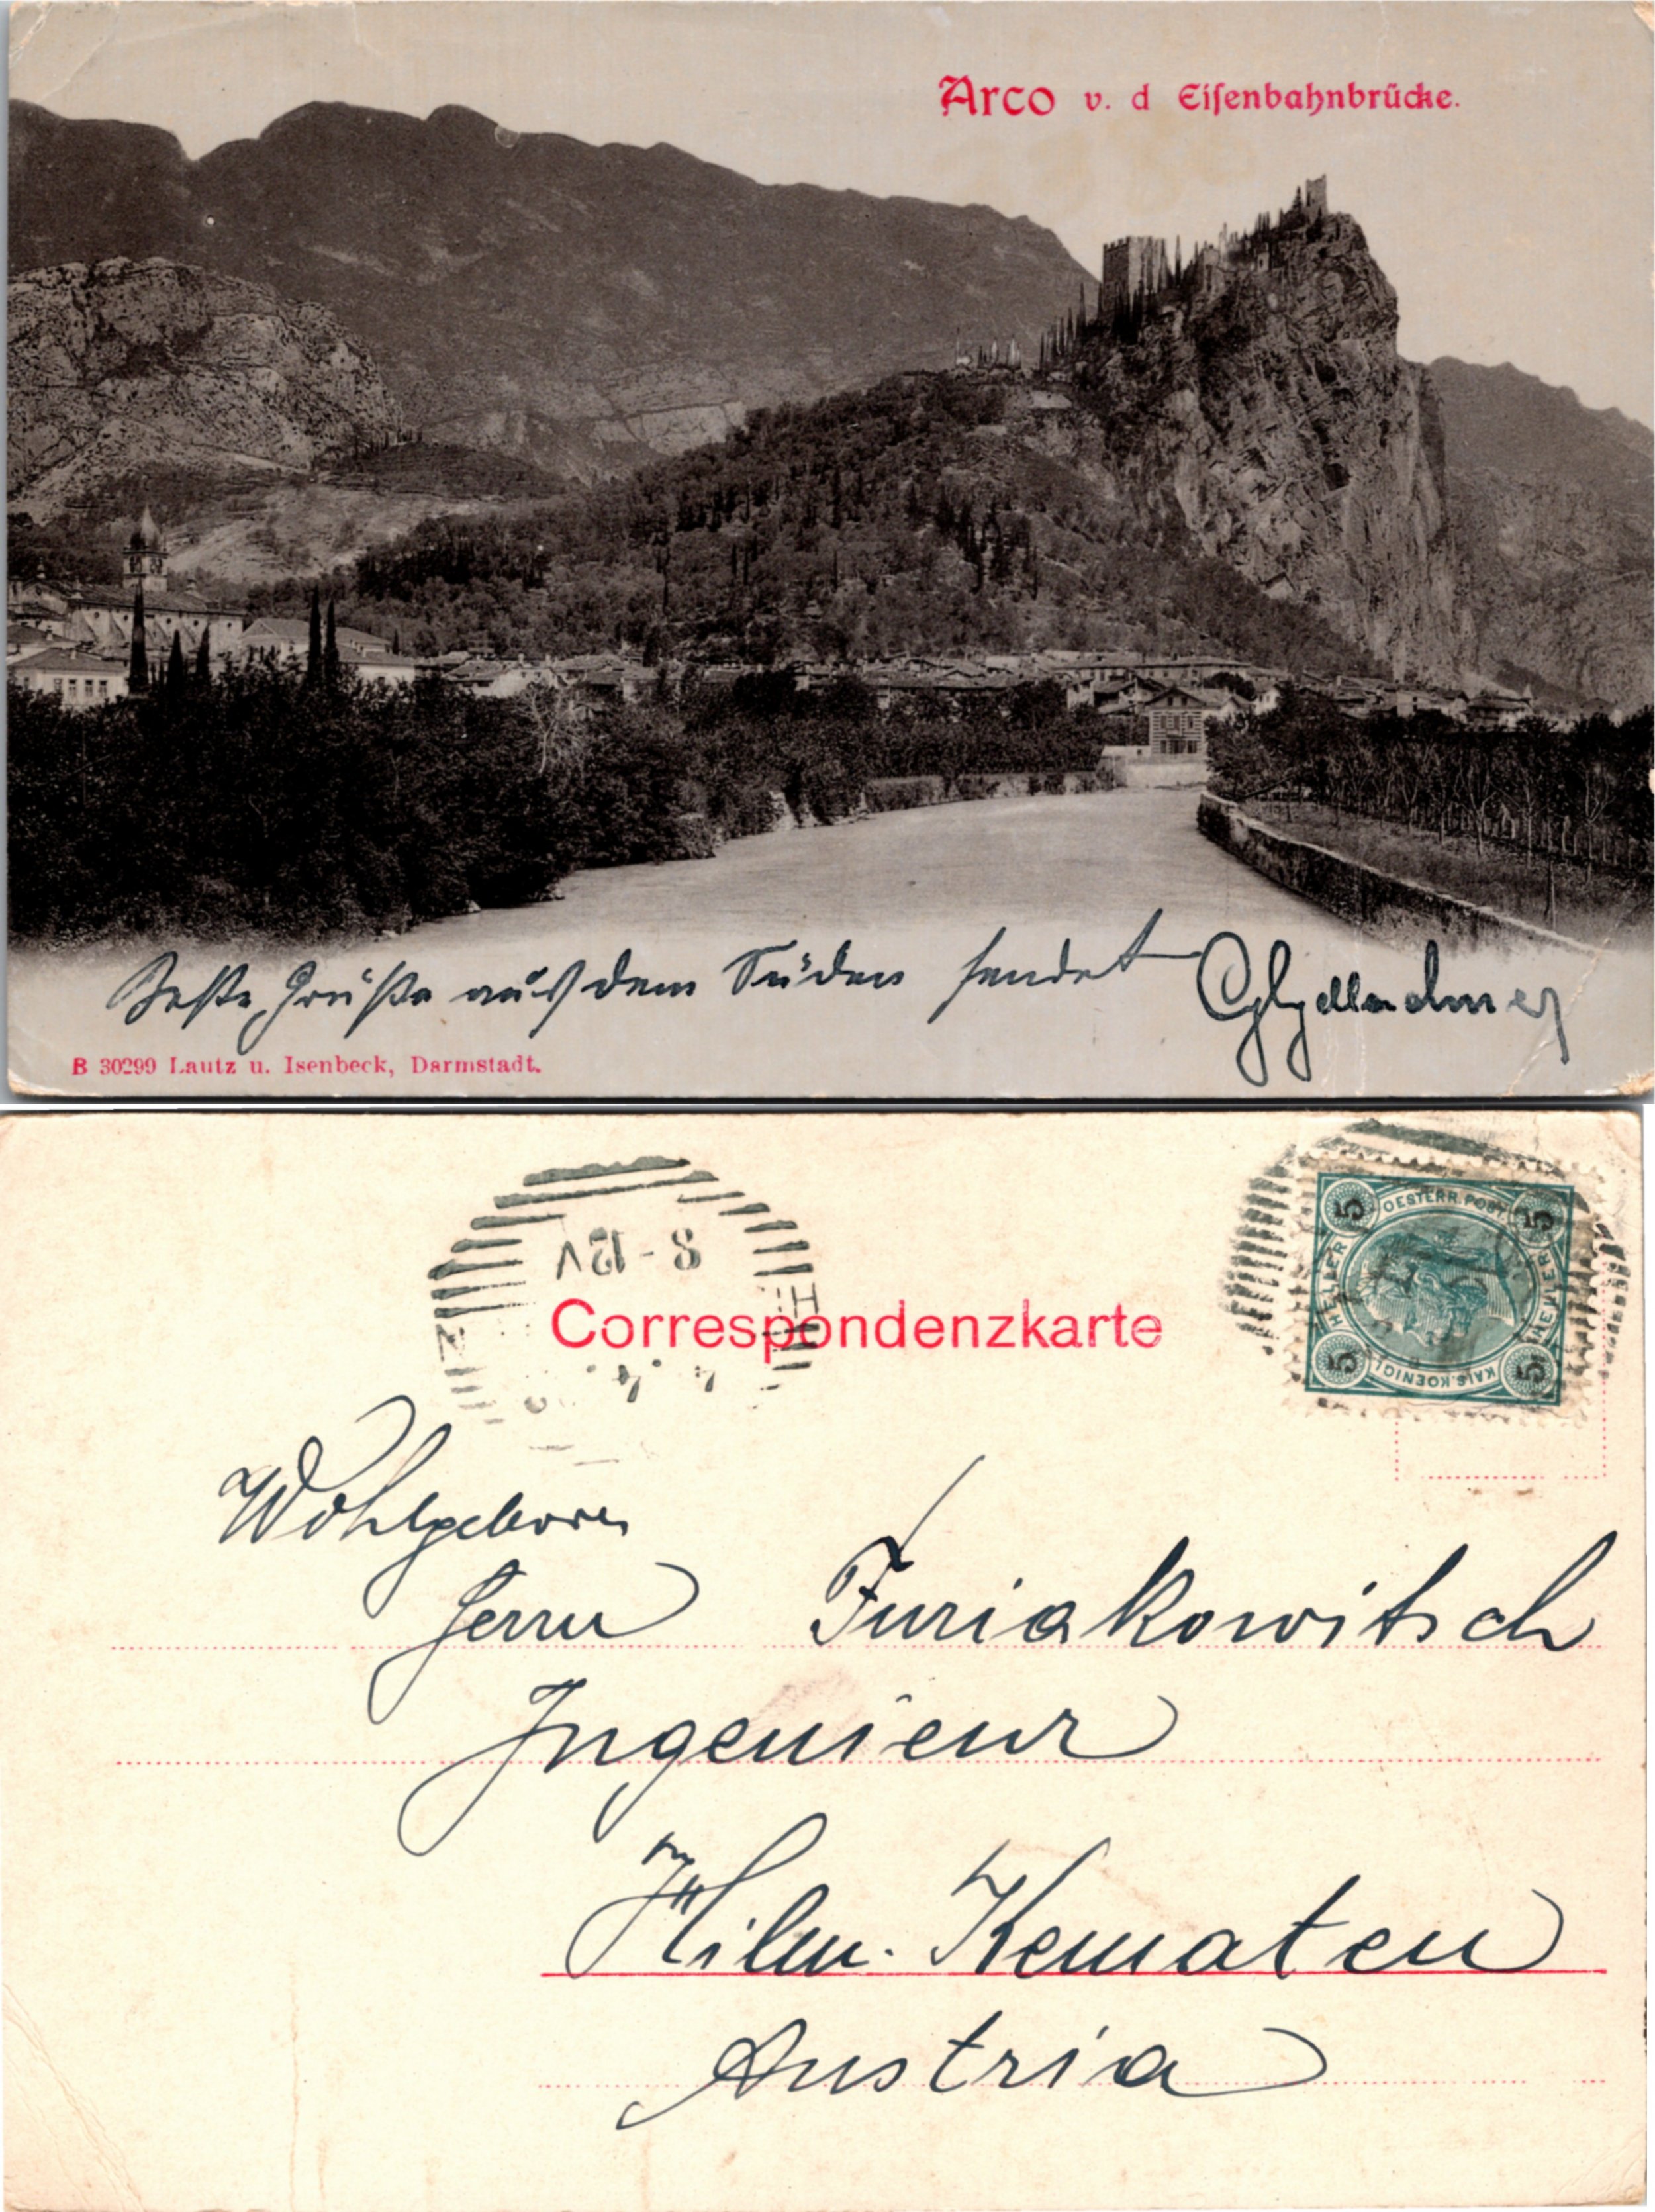 Arco v. d Eiſenbahnbrücke.
Beste Grüße aus dem Süden sendet
B 30299 Lautz u. Isenbeck, Darmstadt.
8-12V
Correspondenzkarte
OESTERR. POST
HELLER HELLER
KAIS. KOENIGL.
5 5 5 5
Wohlgeboren
Herrn Furiakowitsch
Ingenieur
Hilm-Kematen
Austria